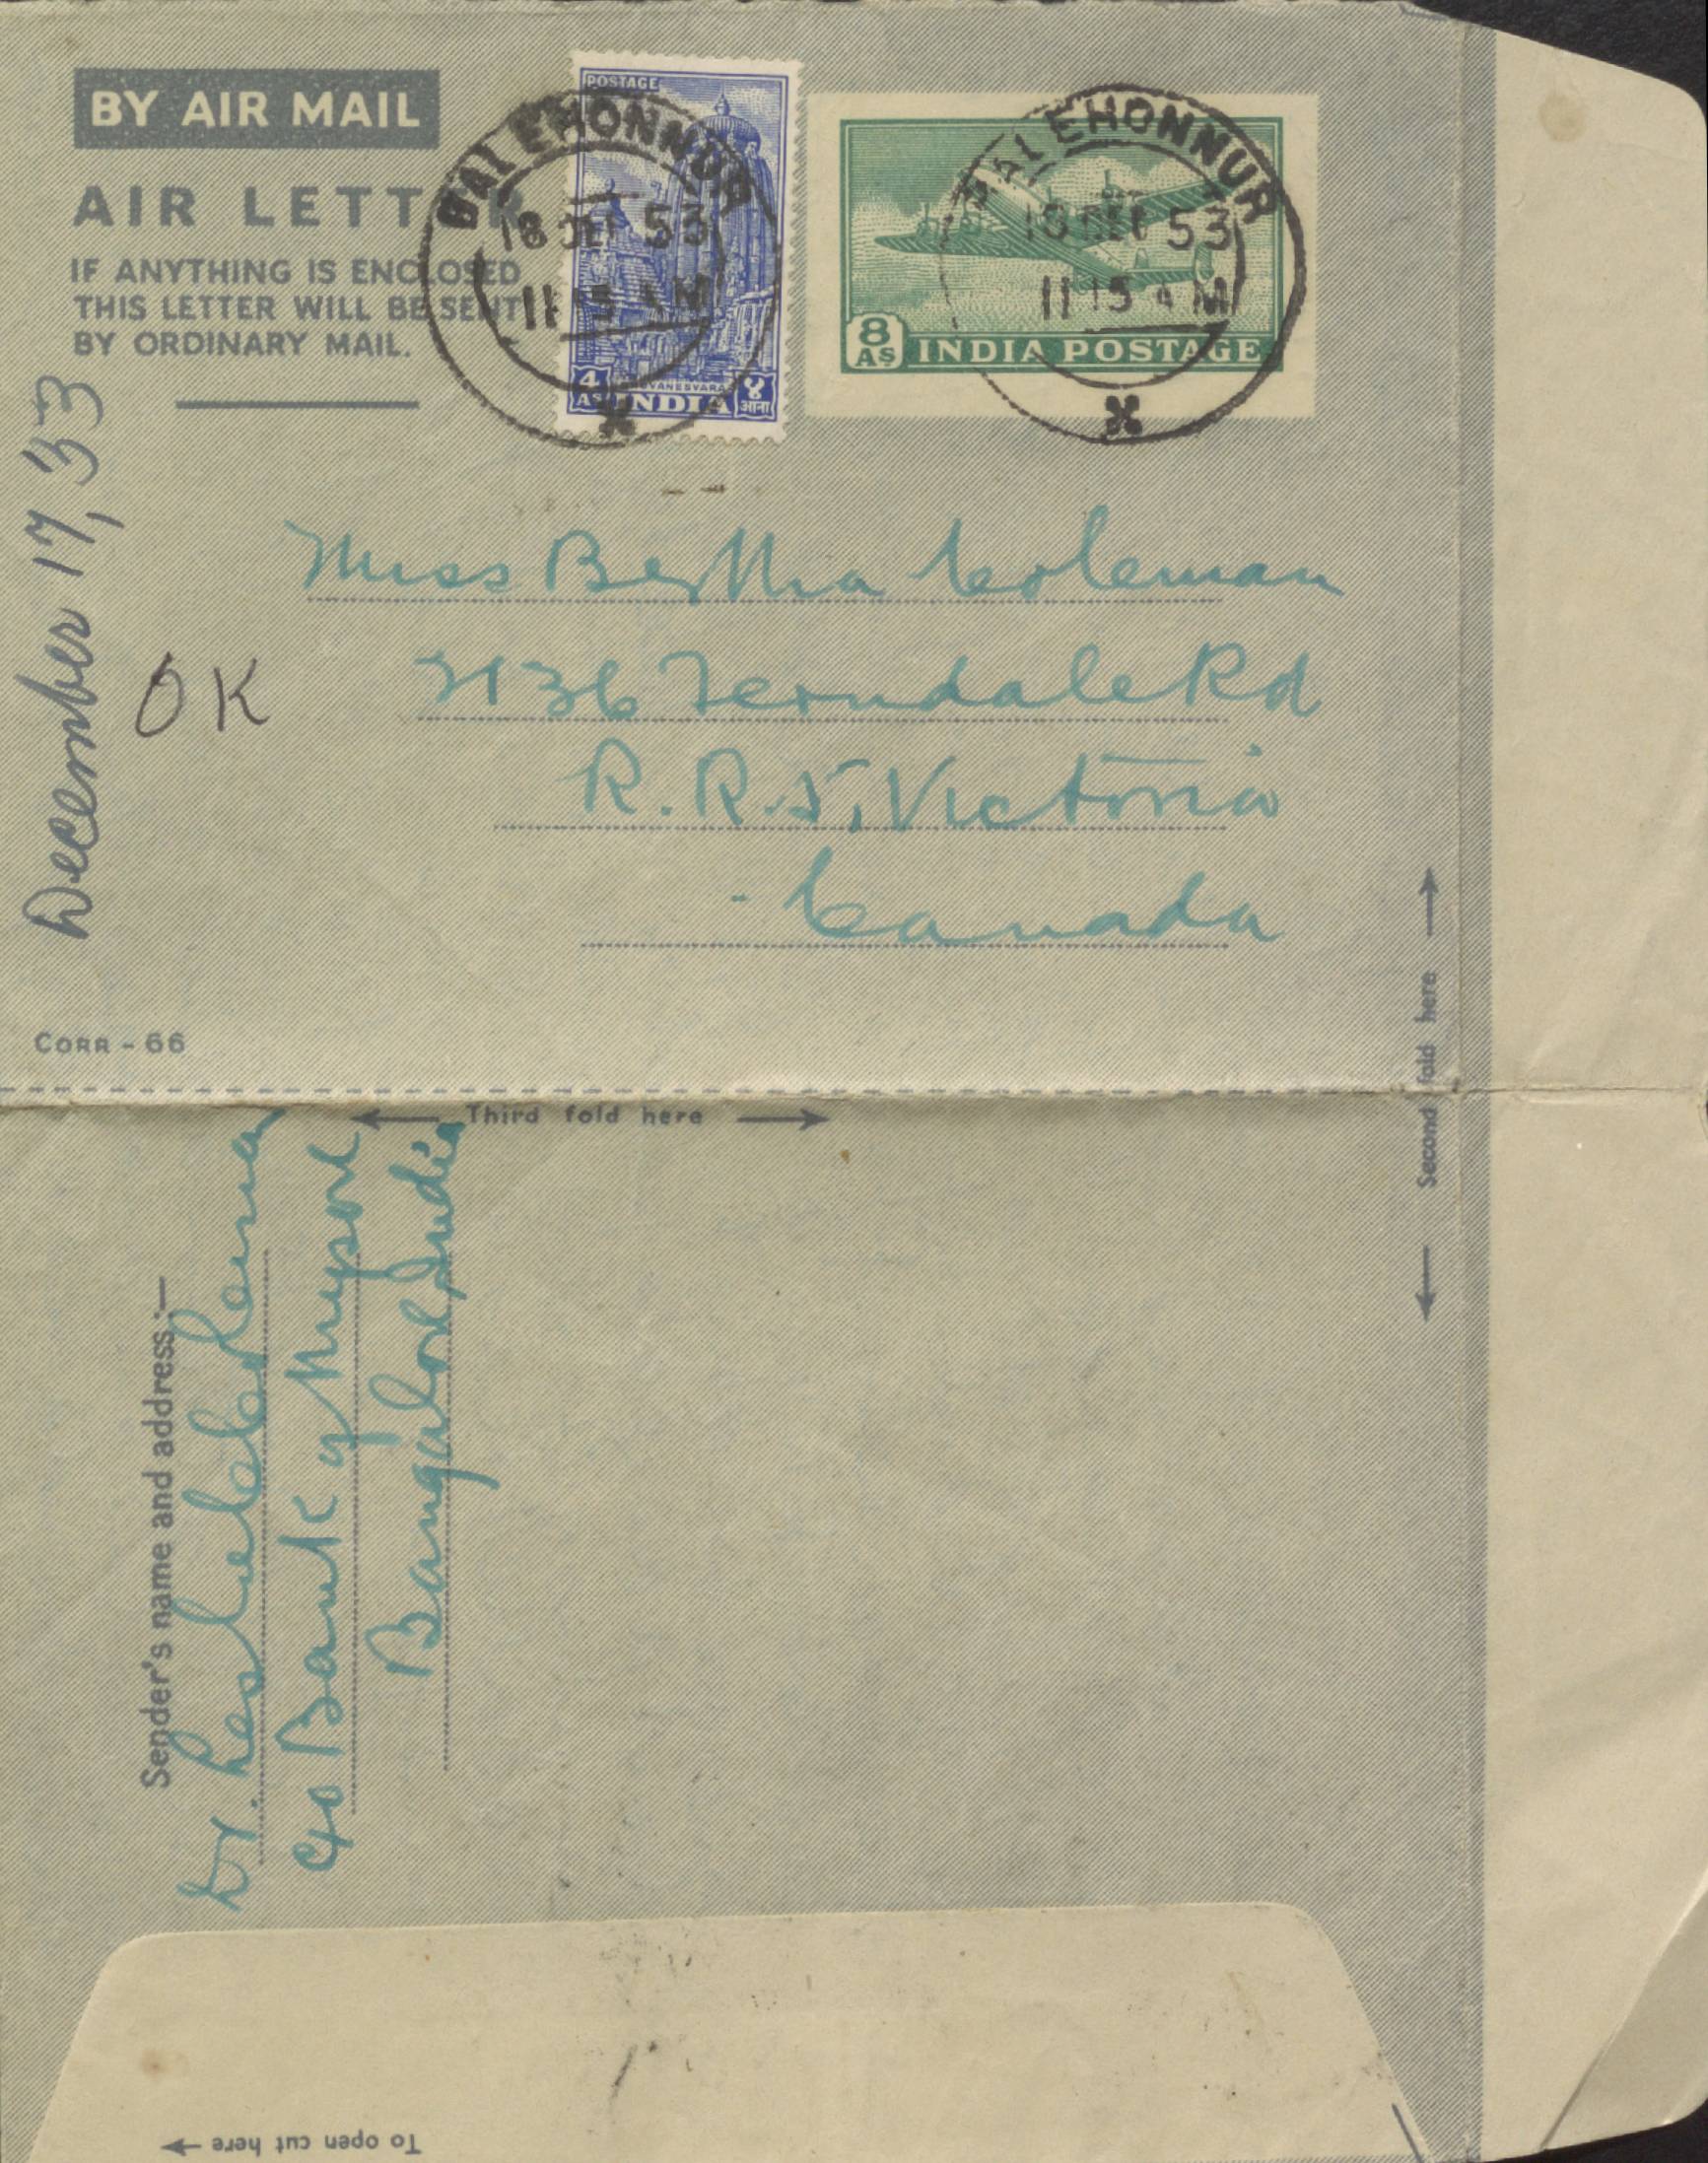 BY AIR MAIL
AIR LETT
IF ANYTHING IS ENCLOSED
THIS LETTER WILL BE SENT
BY ORDINARY MAIL.
POSTAGE
4
AS
INDIA
४
आना
BALEHONNUR
18 DEC 53
11 15 AM
8
AS
INDIA POSTAGE
BALEHONNUR
18 DEC 53
11 15 AM
December 17, 53
OK
Miss Bertha Coleman
Ferndale Rd
R.R.5, Victoria
Canada
CORR - 66
Third fold here
Second fold here
Sender's name and address:—
Dr.
c/o Bank of Mysore
Bangalore India
To open cut here